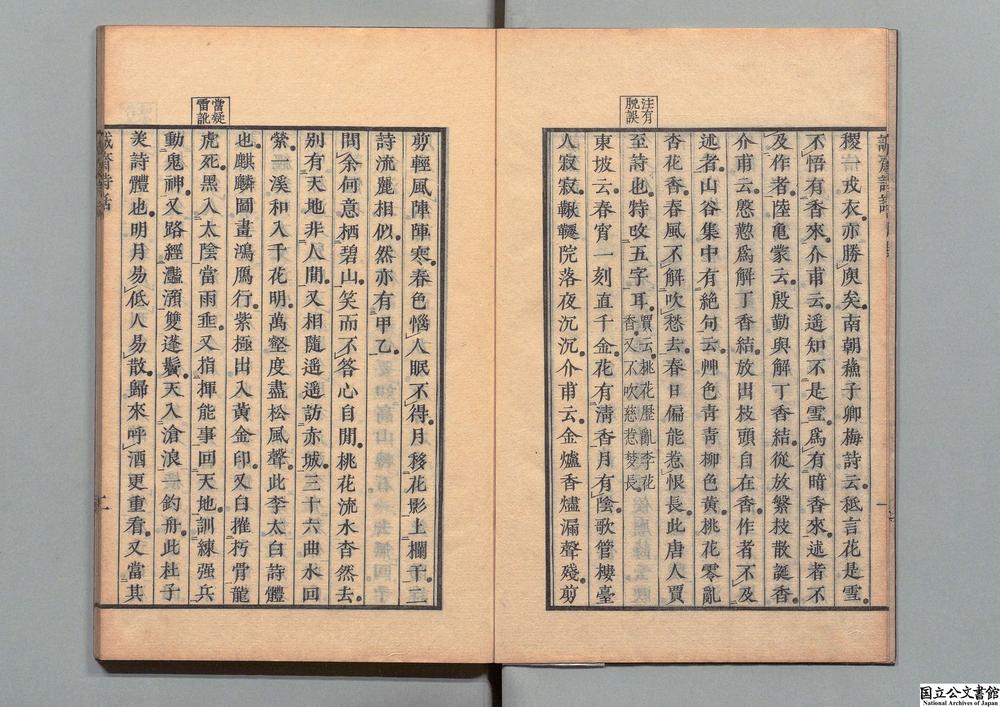 注有
脫誤
誠齋詩話
稷戎衣亦勝庾矣南朝蘓子卿梅詩云秪言花是雪
不悟有香來介甫云遥知不是雪爲有暗香來述者不
及作者陸龜蒙云殷勤與解丁香結從放繁枝散誕香
介甫云慇懃爲解丁香結放出枝頭自在香作者不及
述者山谷集中有絶句云艸色青青柳色黄桃花零亂
杏花香春風不解吹愁去春日偏能惹恨長此唐人賈
至詩也特改五字耳賈云桃花歷亂李花
香又不吹愁惹夢長
東坡云春宵一刻直千金花有清香月有陰歌管樓臺
人寂寂鞦韆院落夜沉沉介甫云金爐香燼漏聲殘剪
一
當疑
雷訛
剪輕風陣陣寒春色惱人眠不得月移花影上欄干三
詩流麗相似然亦有甲乙
問余何意栖碧山笑而不答心自閒桃花流水杳然去
别有天地非人間又相隨遥遥訪赤城三十六曲水回
縈一溪和入千花明萬壑度盡松風聲此李太白詩體
也麒麟圖畫鴻鴈行紫極出入黄金印又白摧朽骨龍
虎死黑入太陰當雨垂又指揮能事回天地訓練强兵
動鬼神又路經灩澦雙蓬鬢天入滄浪一釣舟此杜子
美詩體也明月易低人易散歸來呼酒更重看又當其
誠齋詩話
二
国立公文書館
National Archives of Japan